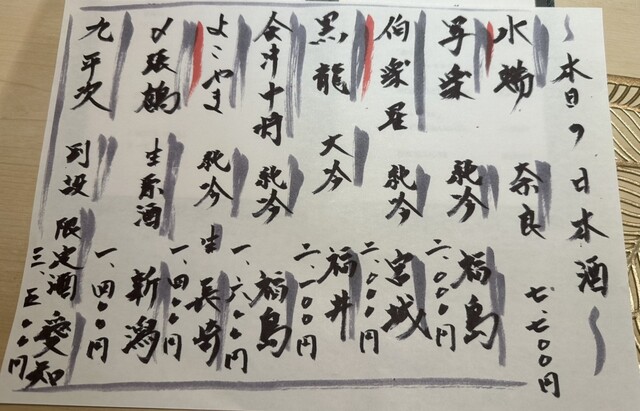 ～本日の日本酒～
水端 奈良 七、七〇〇円
写楽 純吟 福島 二、〇〇〇円
伯楽星 純吟 宮城 二、〇〇〇円
黒龍 大吟 福井 二、一〇〇円
会津中将 純吟 福島 一、六〇〇円
よこやま 純吟 生 長崎 一、四〇〇円
〆張鶴 生原酒 新潟 一、四〇〇円
九平次 別誂 限定酒 愛知 三、五〇〇円